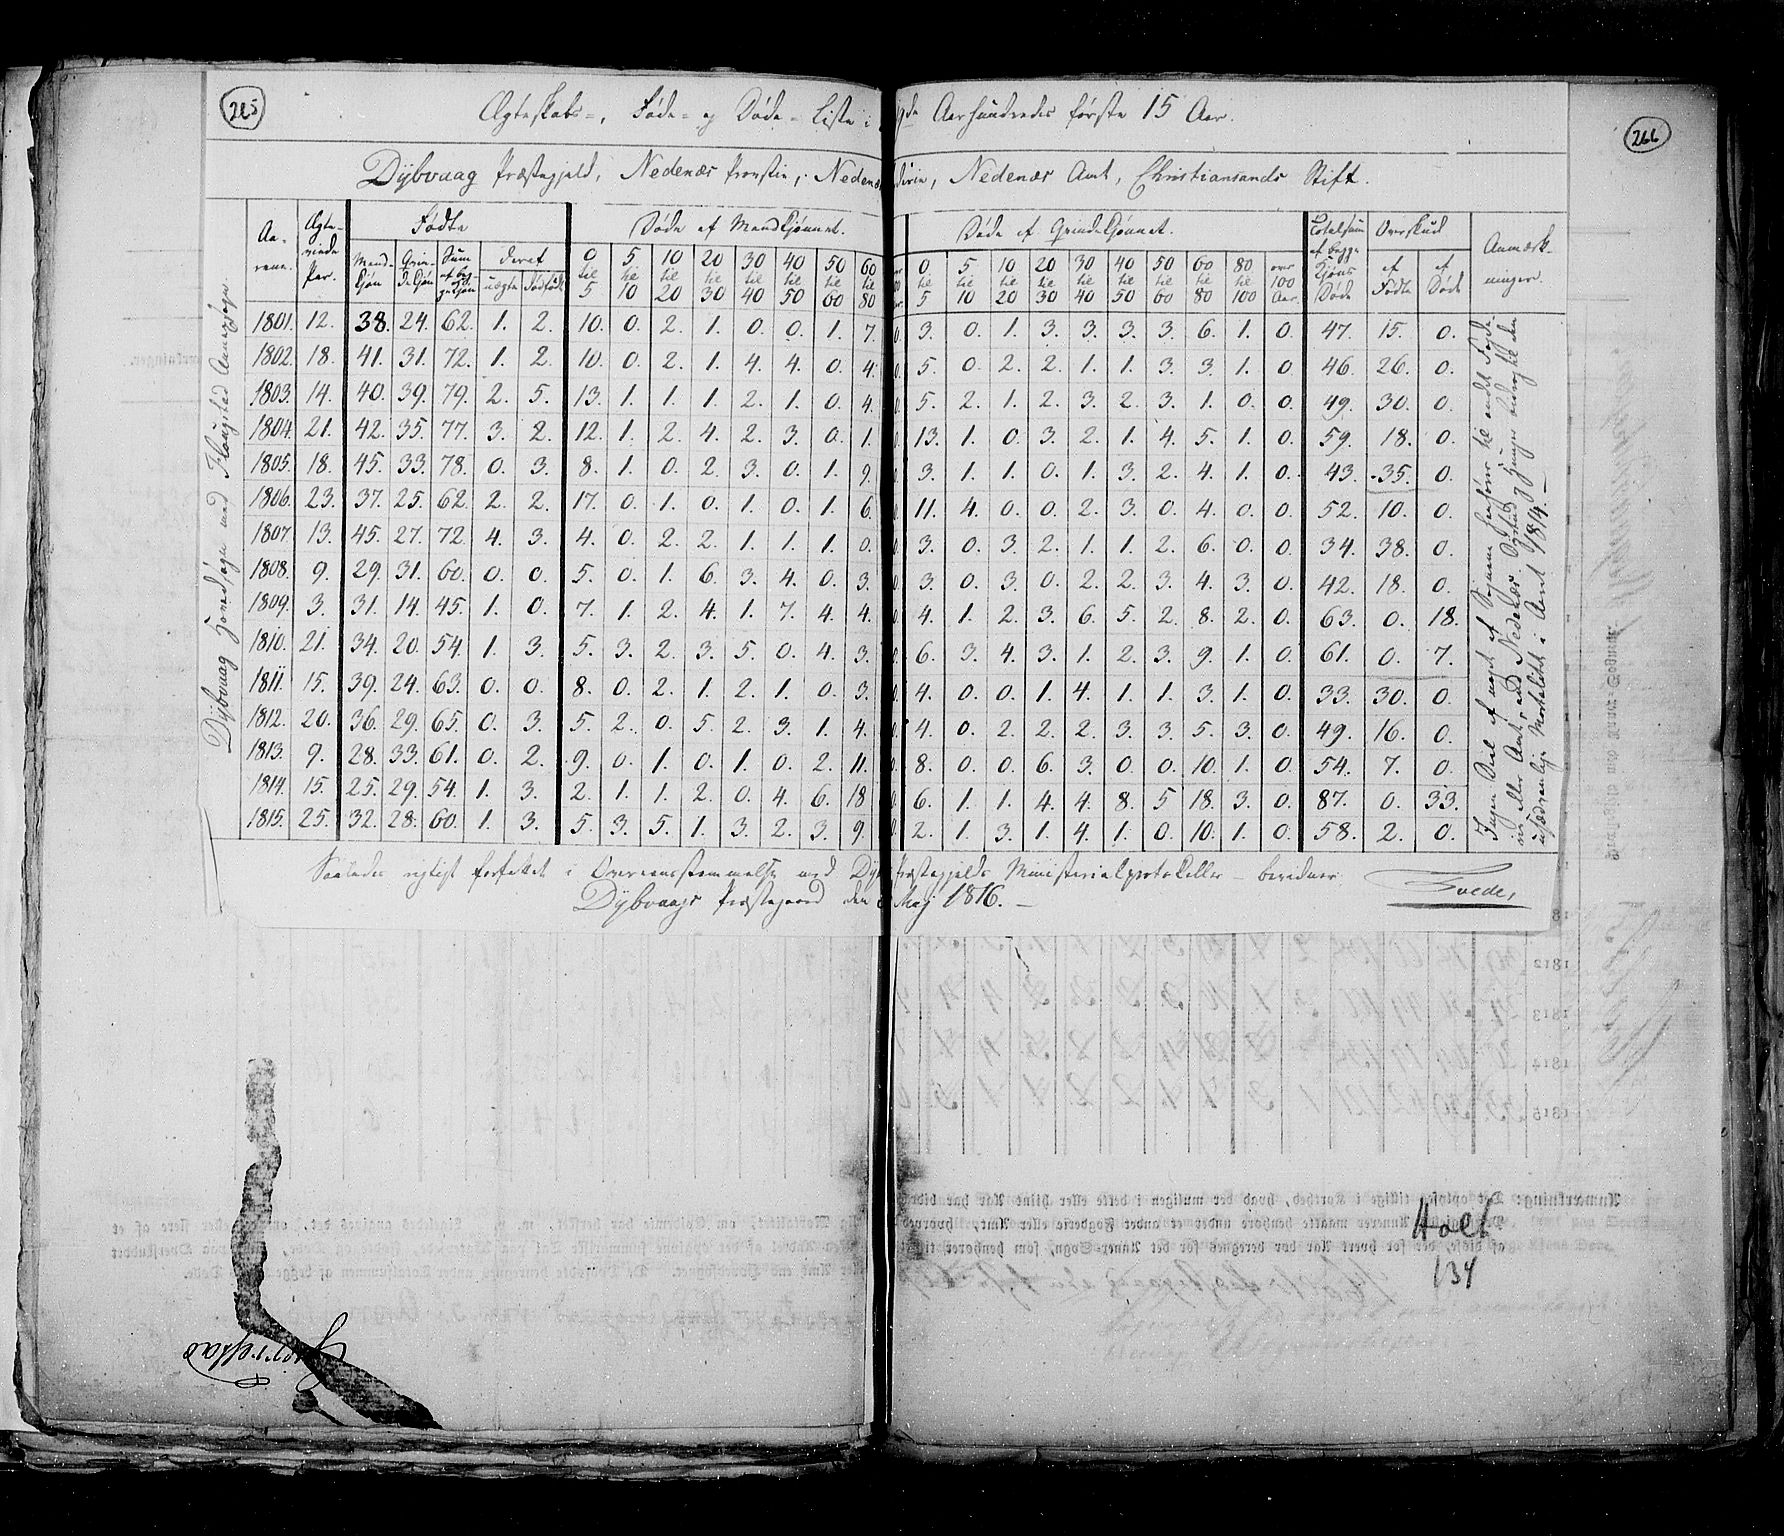 265
266
Ægteskabs-, Føde- og Døde- Liste i 19de Aarhundredes første 15 Aar.
Dÿbvaag Præstegjeld, Nedenæs Provstie, Nedenæs Amt, Christiansands Stift.
Dÿbvaag Hovedsogn med Annexsogn
Aarene. Ægteviede Par. Fødte Døde af Mandkjønnet. Døde af Qvindekjønnet. Totalsum af begge Kjøns Døde Overskud Anmærkninger.
Mandkjøn Qvindekjøn Sum af begge Kjøn deraf uægte dødfødte
0 til 5 5 til 10 10 til 20 20 til 30 30 til 40 40 til 50 50 til 60 60 til 80
0 til 5 5 til 10 10 til 20 20 til 30 30 til 40 40 til 50 50 til 60 60 til 80 80 til 100 over 100 Aar. af Fødte af Døde
1801. 12. 38. 24. 62. 1. 2. 10. 0. 2. 1. 0. 0. 1. 7. 0. 3. 0. 1. 3. 3. 3. 3. 6. 1. 0. 47. 15. 0.
1802. 18. 41. 31. 72. 1. 2. 10. 0. 2. 1. 4. 4. 0. 4. 0. 5. 0. 2. 2. 1. 1. 3. 3. 1. 0 46. 26. 0.
1803. 14. 40. 39. 79. 2. 5. 13. 1. 1. 1. 2. 1. 0. 4. 0. 5. 2. 1. 2. 3. 2. 3. 1. 0. 0. 49. 30. 0.
1804. 21. 42. 35. 77. 3. 2. 12. 1. 2. 4. 2. 3. 0. 1. 0. 13. 1. 0. 3. 2. 1. 4. 5. 1. 0. 59. 18. 0.
1805. 18. 45. 33. 78. 0. 3. 8. 1. 0. 2. 3. 0. 1. 9. 0. 3. 1. 1. 0. 1. 3. 2. 4. 1. 0. 43. 35. 0.
1806. 23. 37. 25. 62. 2. 2. 17. 0. 1. 0. 1. 0. 1. 6. 0. 11. 4. 0. 0. 2. 3. 0. 4. 0. 0. 52. 10. 0.
1807. 13. 45. 27. 72. 4. 3. 4. 0. 2. 2. 1. 1. 1. 0. 0. 3. 0. 3. 2. 1. 1. 2. 6. 0. 0. 34. 38. 0.
1808. 9. 29. 31. 60. 0. 0. 5. 0. 1. 6. 3. 4. 0. 3. 0. 3. 0. 3. 0. 2. 2. 3. 4. 3. 0. 42. 18. 0.
1809. 3. 31. 14. 45. 1. 0. 7. 1. 2. 4. 1. 7. 4. 4. 0. 4. 1. 2. 3. 6. 5. 2. 8. 2. 0. 63. 0. 18.
1810. 21. 34. 20. 54. 1. 3. 5. 3. 2. 3. 5. 0. 4. 3. 0. 6. 3. 4. 3. 1. 2. 3. 9. 1. 0. 61. 0. 7.
1811. 15. 39. 24. 63. 0. 0. 8. 0. 2. 1. 2. 1. 0. 3. 0. 4. 0. 0. 1. 4. 1. 1. 3. 1. 0. 33. 30. 0.
1812. 20. 36. 29. 65. 0. 3. 5. 2. 0. 5. 2. 3. 1. 4. 0. 4. 0. 2. 2. 2. 3. 3. 5. 3. 0. 49. 16. 0.
1813. 9. 28. 33. 61. 0. 2. 9. 0. 1. 0. 1. 0. 2. 11. 0. 8. 0. 0. 6. 3. 0. 0. 10. 1. 0 54. 7. 0.
1814. 15. 25. 29. 54. 1. 3. 2. 1. 1. 2. 0. 4. 6. 18 0. 6. 1. 1. 4. 4. 8. 5 18. 3. 0. 87. 0. 33.
1815. 25. 32. 28. 60. 1. 3. 5. 3. 5. 1. 3. 2. 3. 9. 0. 2. 1. 3. 1. 4. 1. 0. 10. 1. 0. 58. 2. 0.
Ingen Deel af noget af Sognene henhører til andet
eller Amt, end Nedenæs.
i Aaret 1814.
Saaledes rigtigt forfattet i Overeensstemmelse med Præstegjelds Ministerialprotokoller
Dÿbvaags Præstegaard den Maj 1816.
Holt
134